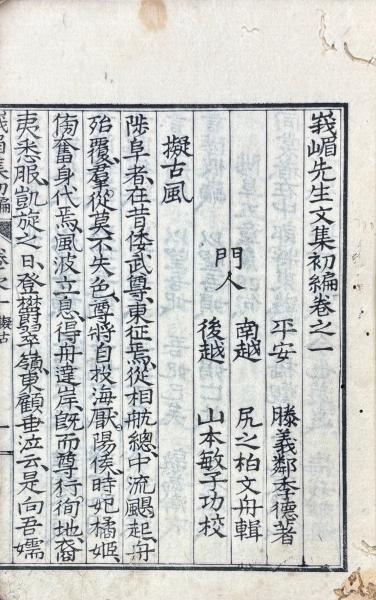 峩嵋先生文集初編卷之一
平安 滕義鄰季德著
門人 南越 尻之柏文舟輯
後越 山本敏子功校
擬古風
陟阜者在昔倭武尊東征焉從相航總中流颶起舟
殆覆羣從莫不失色尊將自投海厭陽侯時妃橘姬
傍奮身代焉風波立息得舟達岸旣而尊行徇地裔
夷悉服凱旋之日登欝翠嶺東顧垂泣云是向吾嬬
卷之一 擬古 一